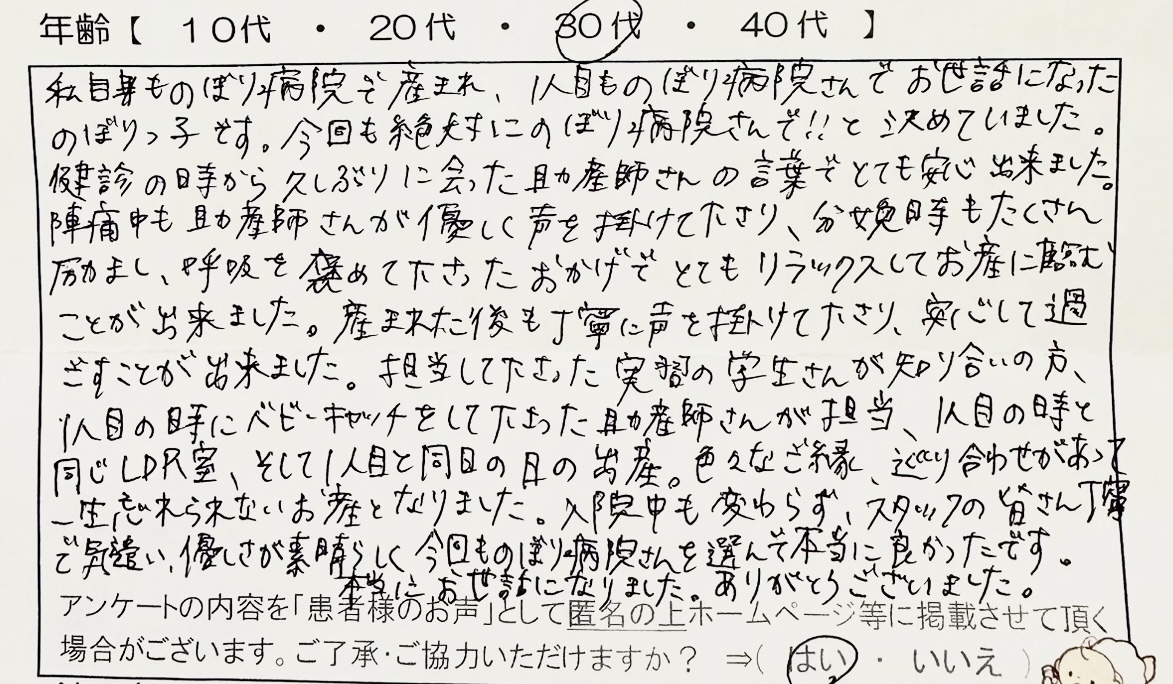 年齢【 10代 ・ 20代 ・ 30代 ・ 40代 】
私自身ものぼり病院で産まれ、1人目ものぼり病院さんでお世話になった
のぼりっ子です。今回も絶対にのぼり病院さんで!!と決めていました。
健診の時から久しぶりに会った助産師さんの言葉でとても安心出来ました。
陣痛中も助産師さんが優しく声を掛けて下さり、分娩時もたくさん
励まし、呼吸を褒めて下さったおかげでとてもリラックスしてお産に臨む
ことが出来ました。産まれた後も丁寧に声を掛けて下さり、安心して過
ごすことが出来ました。担当して下さった実習の学生さんが知り合いの方、
1人目の時にベビーキャッチをして下さった助産師さんが担当、1人目の時と
同じLDR室、そして1人目と同日の日の出産。色々なご縁、巡り合わせがあって
一生忘れられないお産となりました。入院中も変わらず、スタッフの皆さん丁寧
で気遣い、優しさが素晴らしく今回ものぼり病院さんを選んで本当に良かったです。
本当にお世話になりました。ありがとうございました。
アンケートの内容を「患者様のお声」として匿名の上ホームページ等に掲載させて頂く
場合がございます。ご了承・ご協力いただけますか? ⇒( はい ・ いいえ )